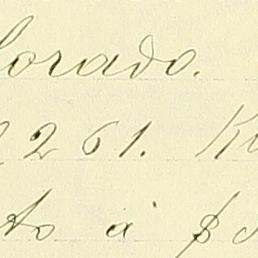 lorado.
2 261. K
ts à $